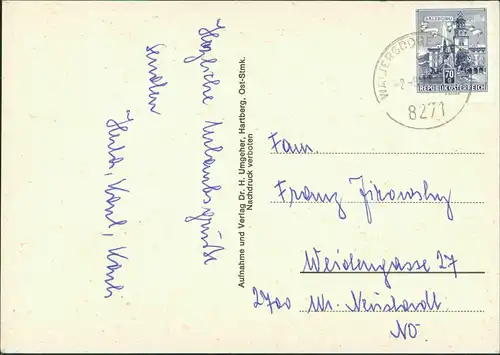 Herzliche Urlaubsgrüße
senden
Hulda, Karl, Karli
Aufnahme und Verlag Dr. H. Umgeher, Hartberg, Ost-Stmk.
Nachdruck verboten
SALZBURG
70
REPUBLIK ÖSTERREICH
8271
Fam.
Franz Jirowsky
Weidengasse 27
2700 Wr. Neustadt
NÖ.